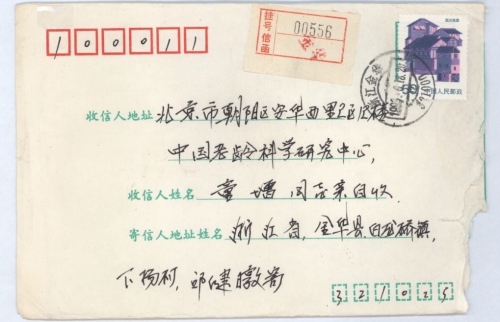 100011
挂号信函
00556
中国人民邮政
收信人地址 北京市朝阳区安华西里
中国老龄科学研究中心,
收信人姓名 同志亲自收
寄信人地址姓名 浙江省,金华县白龙桥镇,
下杨村, 邱健
321025